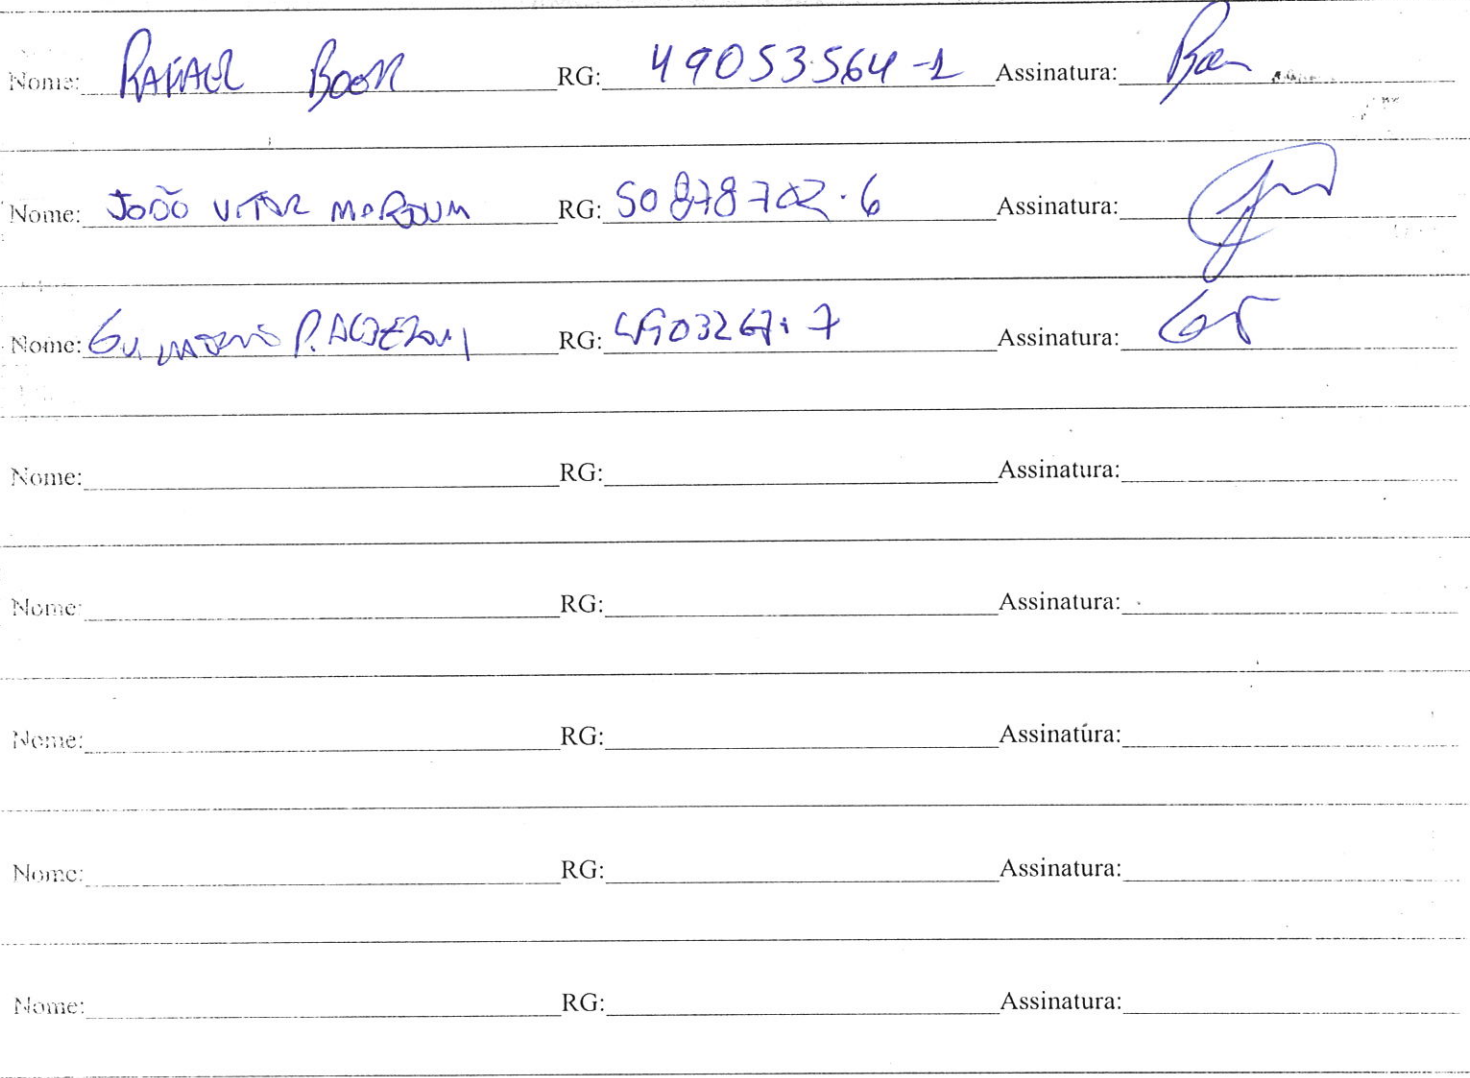 Nome: RAFAEL BOOR RG: 49053564-1 Assinatura:
Nome: JOÃO VITOR MARDUM RG: 50878702-6 Assinatura:
Nome: RG: Assinatura:
Nome: RG: Assinatura:
Nome: RG: Assinatura:
Nome: RG: Assinatura:
Nome: RG: Assinatura:
Nome: RG: Assinatura: